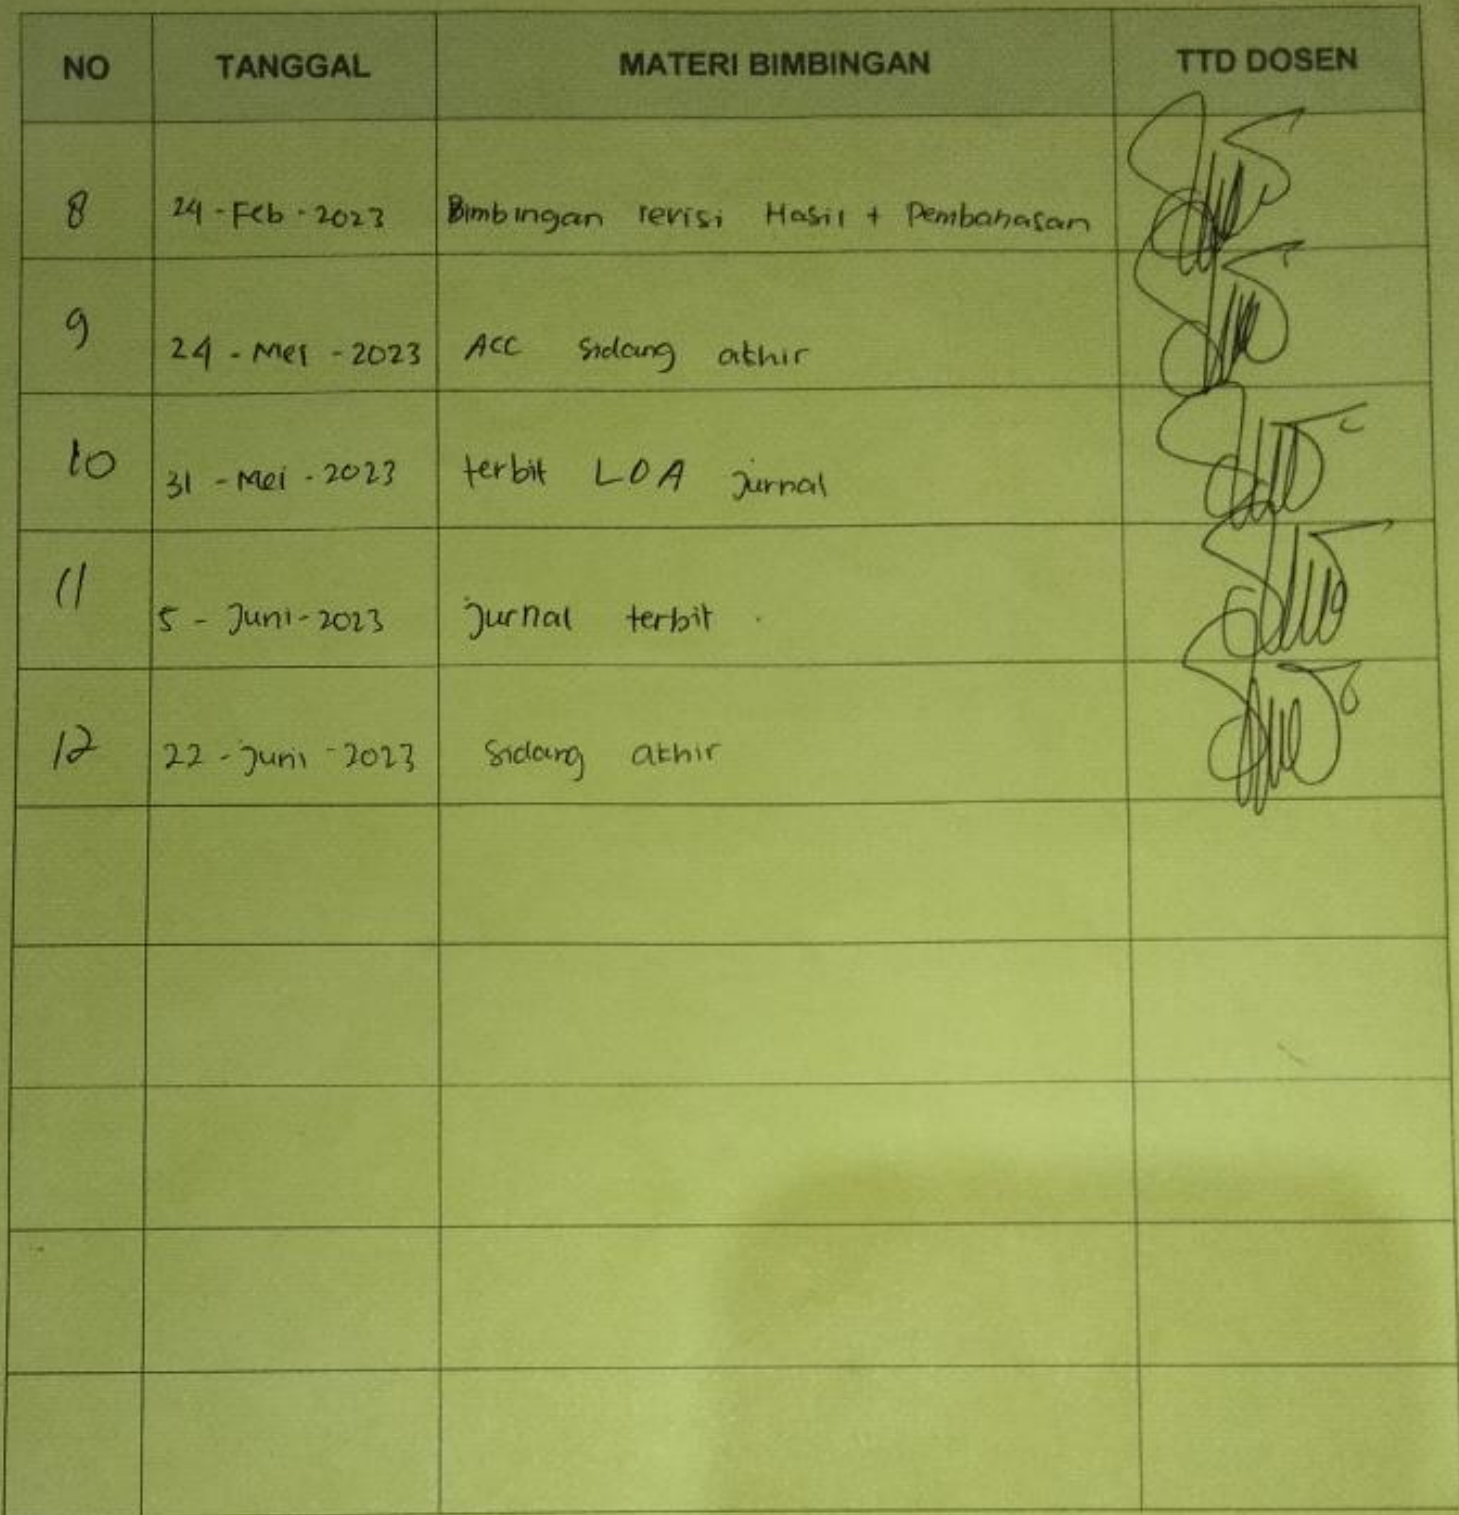 NO TANGGAL MATERI BIMBINGAN TTD DOSEN
8 24 - Feb - 2023 Bimbingan revisi Hasil + Pembahasan
9 24 - Mei - 2023 ACC sidang akhir
10 31 - Mei - 2023 terbit LOA Jurnal
11 5 - Juni - 2023 Jurnal terbit
12 22 - Juni - 2023 sidang akhir